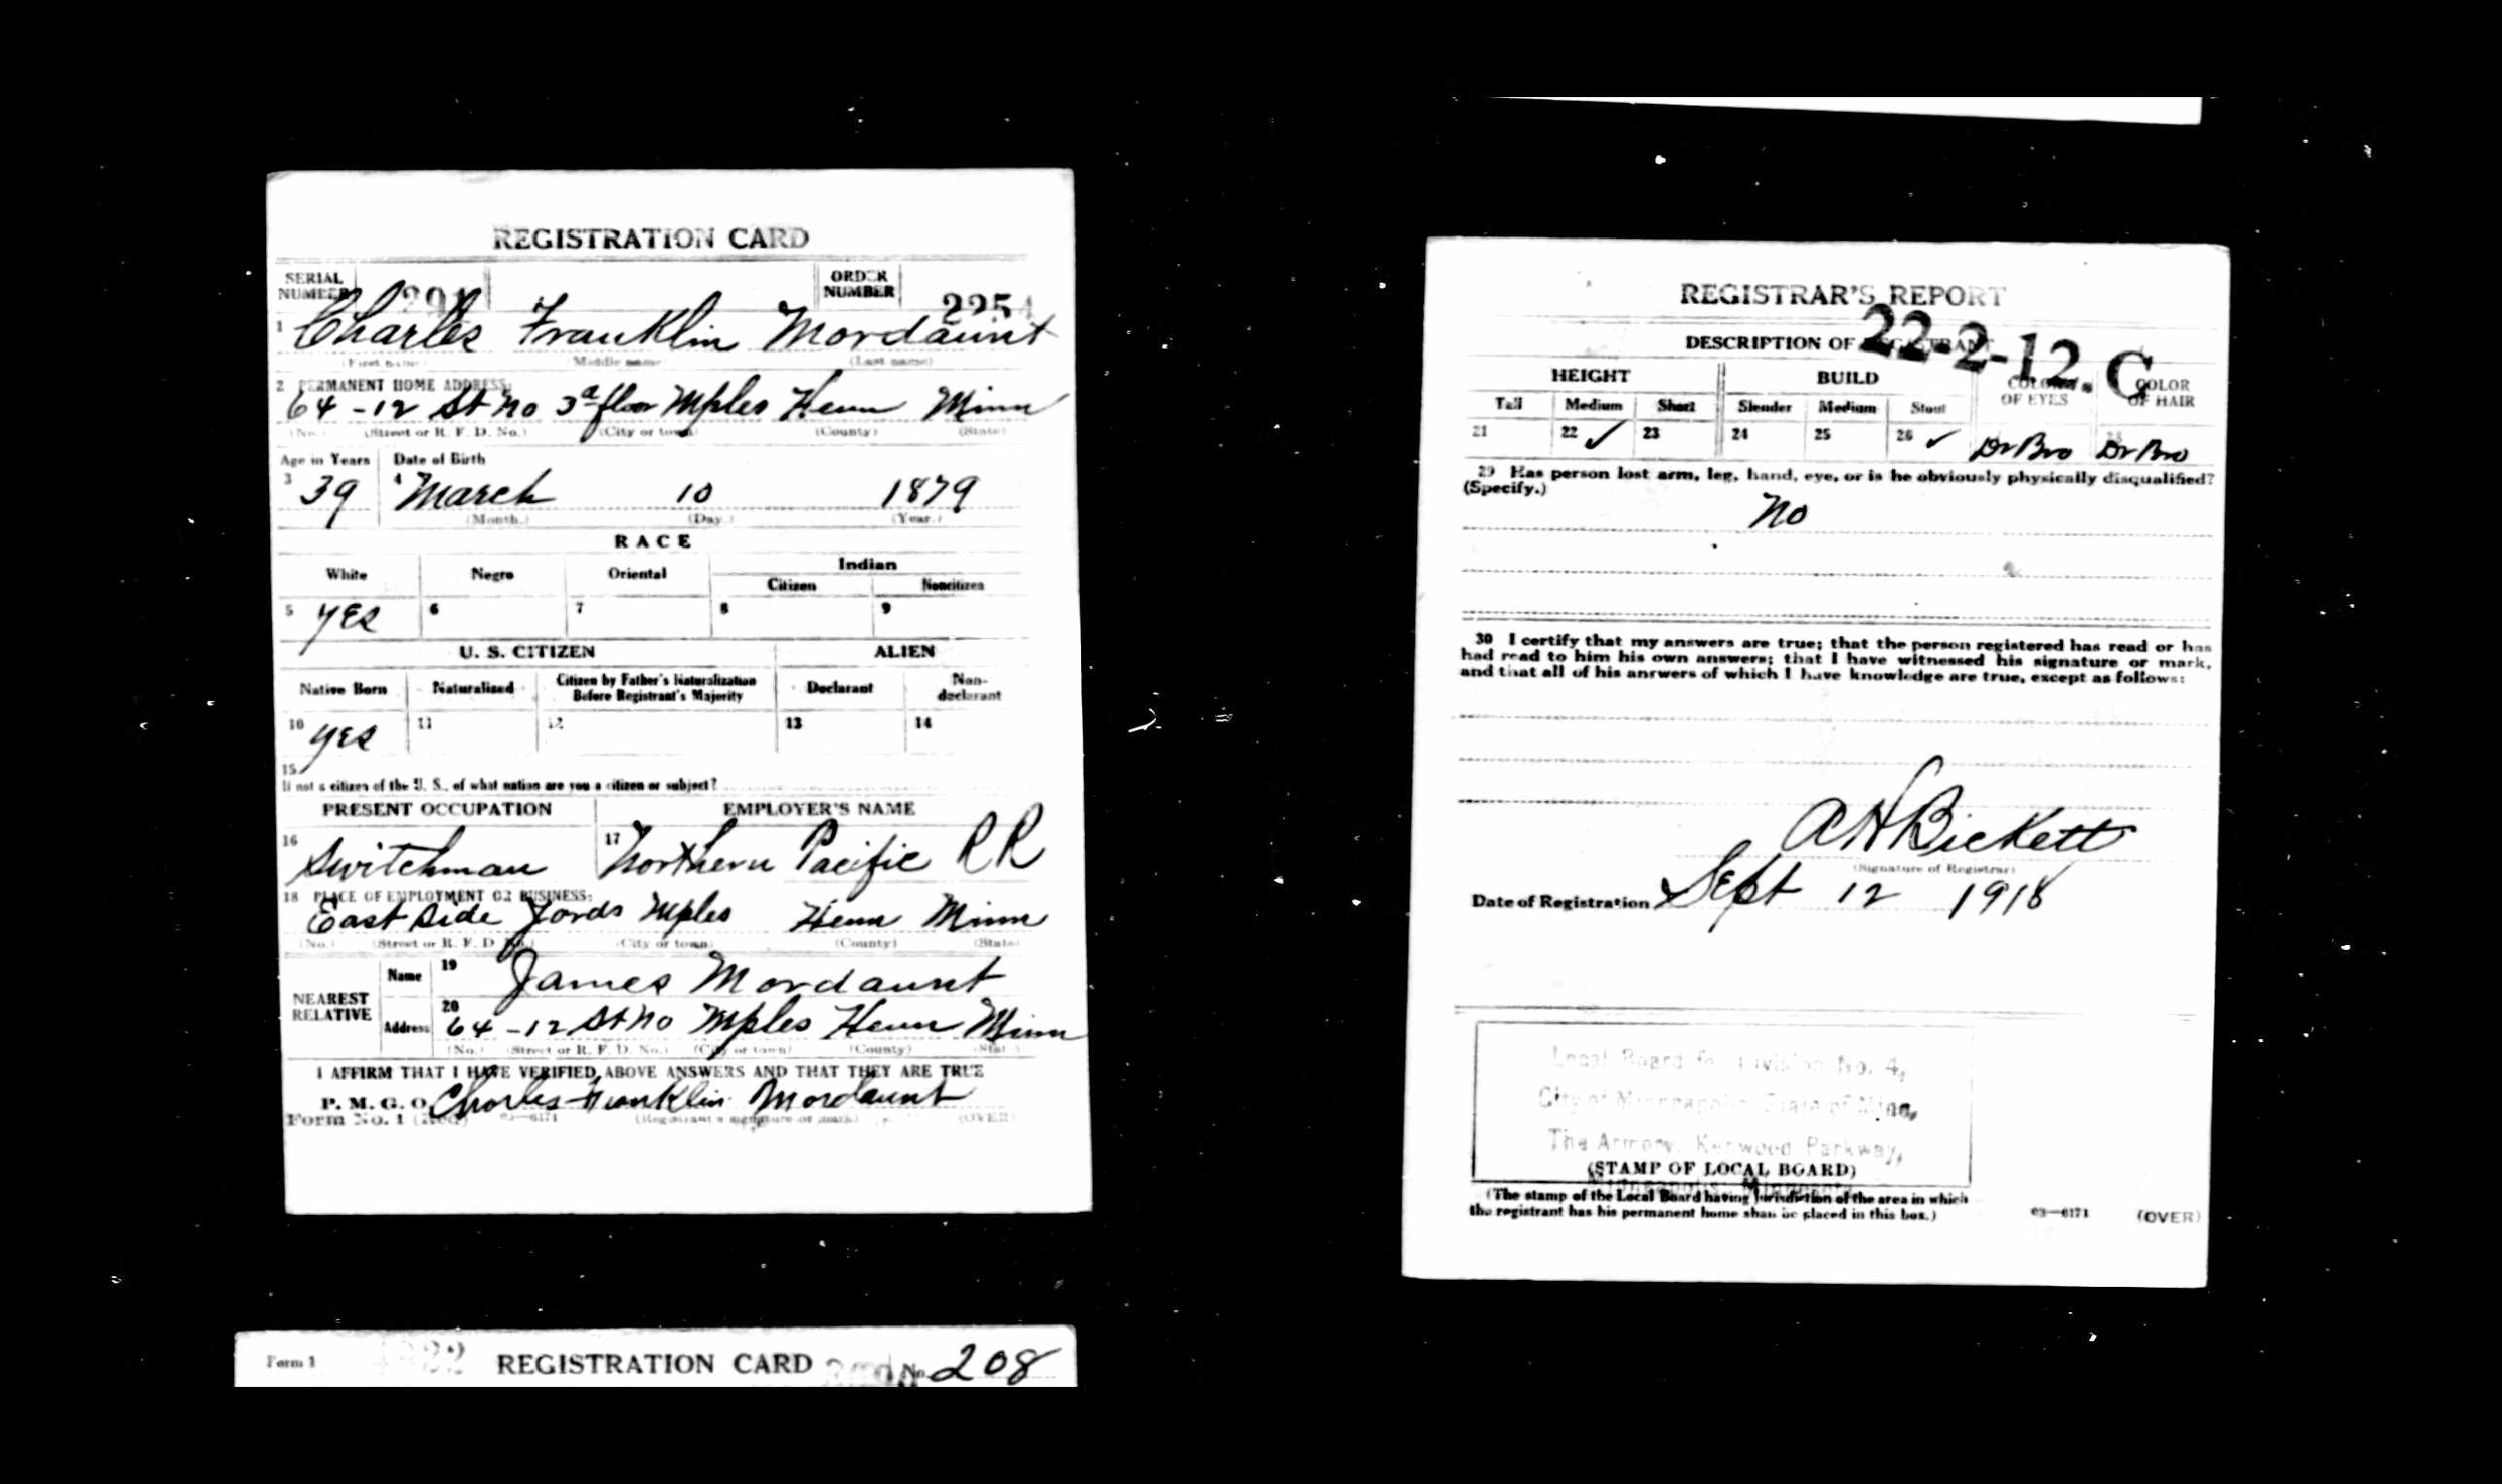 REGISTRATION CARD
SERIAL NUMBER
ORDER NUMBER 2254
1 Charles Franklin Mordaunt
(First name) (Middle name) (Last name)
2 PERMANENT HOME ADDRESS:
64 - 12 St No 3d floor Mples Henn Minn
(No.) (Street or R. F. D. No.) (City or town) (County) (State)
Age in Years Date of Birth
3 39 4 March 10 1879
(Month.) (Day.) (Year.)
RACE
White Negro Oriental Indian
Citizen Noncitizen
5 yes 6 7 8 9
U. S. CITIZEN ALIEN
Native Born Naturalized Citizen by Father's Naturalization Before Registrant's Majority Declarant Non-declarant
10 yes 11 12 13 14
15
If not a citizen of the U. S., of what nation are you a citizen or subject?
PRESENT OCCUPATION EMPLOYER'S NAME
16 Switchman 17 Northern Pacific RR
18 PLACE OF EMPLOYMENT OR BUSINESS:
East Side Yords Mples Henn Minn
(No.) (Street or R. F. D. No.) (City or town) (County) (State)
NEAREST RELATIVE
Name 19 James Mordaunt
Address 20 64 - 12 St No Mples Henn Minn
(No.) (Street or R. F. D. No.) (City or town) (County) (State)
I AFFIRM THAT I HAVE VERIFIED ABOVE ANSWERS AND THAT THEY ARE TRUE
P. M. G. O. Charles Franklin Mordaunt
Form No. 1 (Red) 03—6171 (Registrant's signature or mark) (OVER)
Form 1 REGISTRATION CARD No. 208
REGISTRAR'S REPORT
22-2-12. C
DESCRIPTION OF REGISTRANT
HEIGHT BUILD COLOR OF EYES COLOR OF HAIR
Tall Medium Short Slender Medium Stout
21 22 ✓ 23 24 25 26 ✓ Dr Bro Dr Bro
29 Has person lost arm, leg, hand, eye, or is he obviously physically disqualified?
(Specify.)
No
30 I certify that my answers are true; that the person registered has read or has
had read to him his own answers; that I have witnessed his signature or mark,
and that all of his answers of which I have knowledge are true, except as follows:
A H Bickett
(Signature of Registrar)
Date of Registration Sept 12 1918
Local Board for Division No. 4,
City of Minneapolis, State of Minn,
The Armory, Kenwood Parkway,
(STAMP OF LOCAL BOARD)
Minneapolis, Minnesota
(The stamp of the Local Board having jurisdiction of the area in which
the registrant has his permanent home shall be placed in this box.)
03—6171 (OVER)